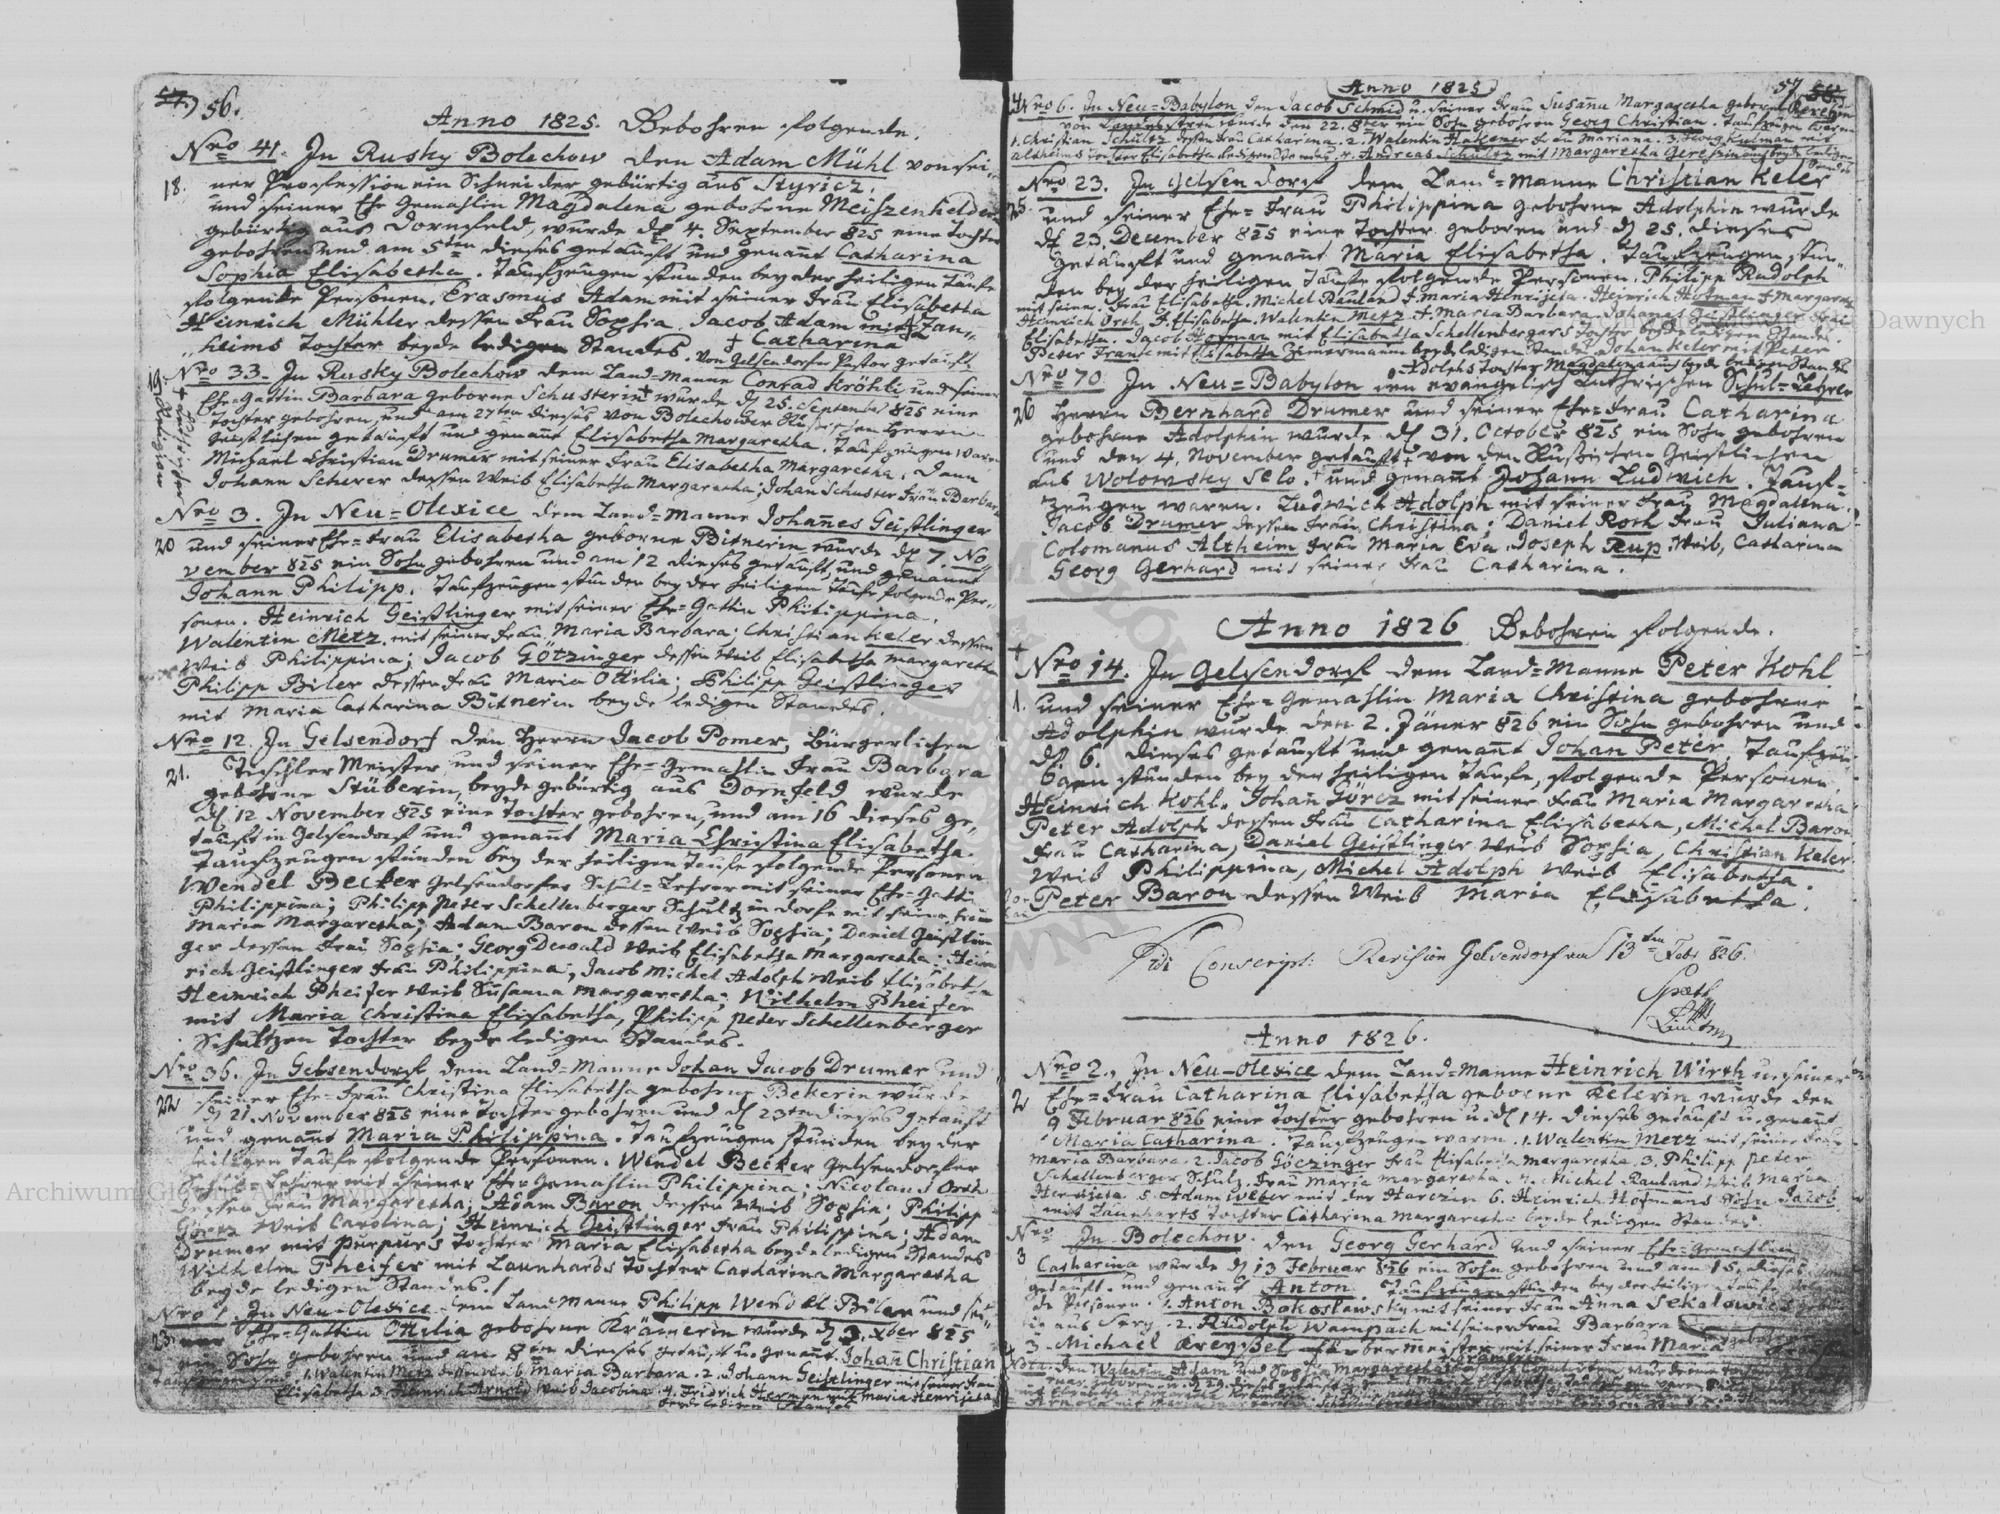 57.) 56.
Anno 1825. Gebohren folgende.
Nro 41. In Rusky Bolechow den Adam Mühl von sei-
18. ner Profession ein Schneider gebürtig aus Styriez.
und seiner Ehe Gemahlin Magdalena gebohrne Meiszenhelder
gebürtig aus Dornfeld, wurde d 4. September 825 eine Tochter
gebohren und am 5ten dieses getauft und genant Catharina
Sophia Elisabetha. Taufzeugen stunden bey der heiligen Taufe
folgende Personen. Erasmus Adam mit seiner Frau Elisabetha
Heinrich Mühler dessen Frau Sophia. Jacob Adam mit Jan-
heims Tochter beyde ledigen Standes. + Catharina
von Gelsendorfer Pastor getauft
19. Nro 33. In Rusky Bolechow dem Land-Manne Conrad Kröhli und seiner
Ehe-Gattin Barbara geborne Schusterin + wurde d 25. September 825 eine
Tochter gebohren, und am 27ten dieses von Bolechower Rusischen Herrn
Geistlichen getauft und genant Elisabetha Margaretha. Taufzeugen waren
Michael Christian Drumer mit seiner Frau Elisabetha Margaretha. Dann
Johann Scherer dessen Weib Elisabetha Margaretha; Johan Schuster Frau Barbara
Nro 3. In Neu-Olexice dem Land-Manne Johannes Geistlinger
20 und seiner Ehe-Frau Elisabetha geborne Bitnerin wurde d 7. No-
vember 825 ein Sohn gebohren und am 12 dieses getauft, und genannt
Johann Philipp. Taufzeugen stunden bey der heiligen Taufe folgende Per-
sonen. Heinrich Geistlinger mit seiner Ehe-Gattin Philippina.
Walentin Metz. mit seiner Frau. Maria Barbara; Christian Keler dessen
Weib Philippina; Jacob Götzinger dessen Weib Elisabetha Margaretha
Philipp Biler dessen Frau Maria Ottilia; Philipp Geistlinger
mit Maria Catharina Bitnerin beyde ledigen Standes.
Nro 12. In Gelsendorf den Herrn Jacob Pomer, Bürgerlichen
21. Tischler Meister und seiner Ehe-Gemahlin Frau Barbara
gebohrne Stüberin, beyde gebürtig aus Dornfeld wurde
d 12 November 825 eine Tochter gebohren, und am 16 dieses ge-
tauft in Gelsendorf und genant Maria Christina Elisabetha.
Taufzeugen stunden bey der heiligen Taufe folgende Personen
Wendel Becker Gelsendorfer Schul-Lehrer mit seiner Ehe-Gattin
Philippina; Philipp Peter Schellenberger Schultz in Dorfe mit seiner Frau
Maria Margaretha; Adam Baron dessen Weib Sophia; Daniel Geistlin-
ger dessen Frau Sophia; Georg Dewald Weib Elisabetha Margaretha; Hein-
rich Geistlinger Frau Philippina; Jacob Michel Adolph Weib Elisabetha
Heinrich Pheifer Weib Susanna Margaretha; Wilhelm Pheifer
mit Maria Christina Elisabetha, Philipp Peter Schellenberger
Schultzen Tochter beyde ledigen Standes.
Nro 36. In Gelsendorf dem Land-Manne Johan Jacob Drumer und
22 seiner Ehe-Frau Christina Elisabetha gebohrne Bekerin wurde
d 21. November 825 eine Tochter gebohren und d 23ten dieses getauft
und genant Maria Philippina. Taufzeugen stunden bey der
heiligen Taufe folgende Personen. Wendel Becker Gelsendorfer
Schul-Lehrer mit seiner Ehe-Gemahlin Philippina; Nicolaus Orth
dessen Frau Margaretha; Adam Baron dessen Weib Sophia; Philipp
Görcz Weib Carolina; Heinrich Geistlinger Frau Philippina; Adam
Drumer mit Purpurs Tochter Maria Elisabetha beyde ledigen Standes
Wilhelm Pheifer mit Launhards Tochter Catharina Margaretha
beyde ledigen Standes.
Nro 1. In Neu-Olexice dem Land Manne Philipp Wendel Biler und sei-
23. ner Ehe-Gattin Ottilia gebohrne Krämerin wurde d 3. xber 825
ein Sohn gebohren und am 8ten dieses getauft u. genant. Johan Christian
Taufzeugen sind 1. Walentin Metz dessen Weib Maria Barbara. 2. Johann Geistlinger mit seiner Frau
Elisabetha 3. Heinrich Arnold Weib Jacobina. 4. Fridrich Herman mit Maria Henrijeta
beyde ledigen Standes
Anno 1825
57. 58.
Nro 6. In Neu-Babylon den Jacob Schmid u. seiner Frau Susanna Margaretha geborne
wurde den 22. 8ber ein Sohn gebohren Georg Christian. Taufzeugen waren
1. Christian Schultz dessen Frau Catharina. 2. Walentin Frau Mariana. 3. Georg Kulman mit
Altheims Tochter Elisabetha ledigen Standes. 4. Andreas Schultz mit Margaretha beyde ledigen
Standes
Nro 23. In Gelsendorf dem Land-Manne Christian Keler
25. und seiner Ehe-Frau Philippina gebohrne Adolphin wurde
d 23. December 825 eine Tochter geboren und d 25. dieses
getauft und genant Maria Elisabetha. Taufzeugen stun-
den bey der heiligen Taufe folgende Personen. Philipp Rudolph
mit seiner Frau Elisabetha. Michel Rauland F. Maria Henrijeta. Heinrich Hofman F. Margareth
Heinrich Orth F. Elisabetha. Walentin Metz F. Maria Barbara. Johanes Geistlinger Frau
Elisabetha. Jacob Herman mit Elisabetha Schellenbergers Tochter beyde ledigen Standes.
Peter Frantz mit Elisabetha Zimermann beyde ledigen Standes. Johan Keler mit Peter
Adolphs Tochter Magdalena auch beyde ledigen Standes
Nro 70. In Neu-Babylon den evangelisch Luthrischen Schul-Lehrer
26 Herrn Bernhard Drumer und seiner Ehe-Frau Catharina
gebohrne Adolphin wurde d 31. October 825 ein Sohn gebohren
und den 4. November getauft + von den Rusischen Geistlichen
aus Wolowsky Selo. + und genant Johann Ludwich. Tauf-
zeugen waren. Ludwich Adolph mit seiner Frau Magdalena.
Jacob Drumer dessen Frau Christina; Daniel Roth Frau Juliana
Colomanus Altheim Frau Maria Eva, Joseph Rup Weib, Catharina
Georg Gerhard mit seiner Frau Catharina.
Anno 1826 Gebohren folgende.
+
Nro 14. In Gelsendorf dem Land-Manne Peter Kohl
1. und seiner Ehe-Gemahlin Maria Christina gebohrne
Adolphin wurde den 2. Jäner 826 ein Sohn gebohren und
d 6. dieses getauft und genant Johan Peter. Taufzeu-
gen stunden bey der heiligen Taufe, folgende Personen
Heinrich Kohl. Johan Görcz mit seiner Frau Maria Margaretha
Peter Adolph dessen Frau Catharina Elisabetha, Michel Baron
Frau Catharina, Daniel Geistlinger Weib Sophia, Christian Keler
Weib Philippina, Michel Adolph Weib Elisabetha.
Peter Baron dessen Weib Maria Elisabetha.
Vidi Conscript: Revision Gelsendorf am 13ten Febr 826.
Anno 1826.
Nro 2., In Neu-Olexice dem Land-Manne Heinrich Wirth u. seiner
2 Ehe-Frau Catharina Elisabetha geborne Kelerin wurde den
9 Februar 826 eine Tochter gebohren u. d 14. dieses getauft u. genant
Maria Catharina. Taufzeugen waren. 1. Walentin Metz mit seiner Frau
Maria Barbara. 2. Jacob Göczinger Frau Elisabetha Margaretha. 3. Philipp Peter
Schellenberger Schulz. Frau Maria Margaretha. 4. Michel Rauland Weib Maria
Henrijeta 5. Adam Weber mit der Harczin 6. Heinrich Hofmans Sohn Jacob
mit Launharts Tochter Catharina Margaretha beyde ledigen Standes
Nro In Bolechow. den Georg Gerhard und seiner Ehe-Gemahlin
3 Catharina wurde d 13 Februar 826 ein Sohn gebohren und am 15. dieses
getauft. und genant Anton. Taufzeugen stunden bey der heiligen Taufe
de Personen. 1. Anton Bokoslawsky mit seiner Frau Anna Sekalowicz
aus Stry. 2. Rudolph Wampach mit seiner Frau Barbara
3. Michael Kreyssel Färber meister mit seiner Frau Maria
4 Nota. Den Walentin Adam und Sophia Margaretha
Archiwum Główne Akt Dawnych